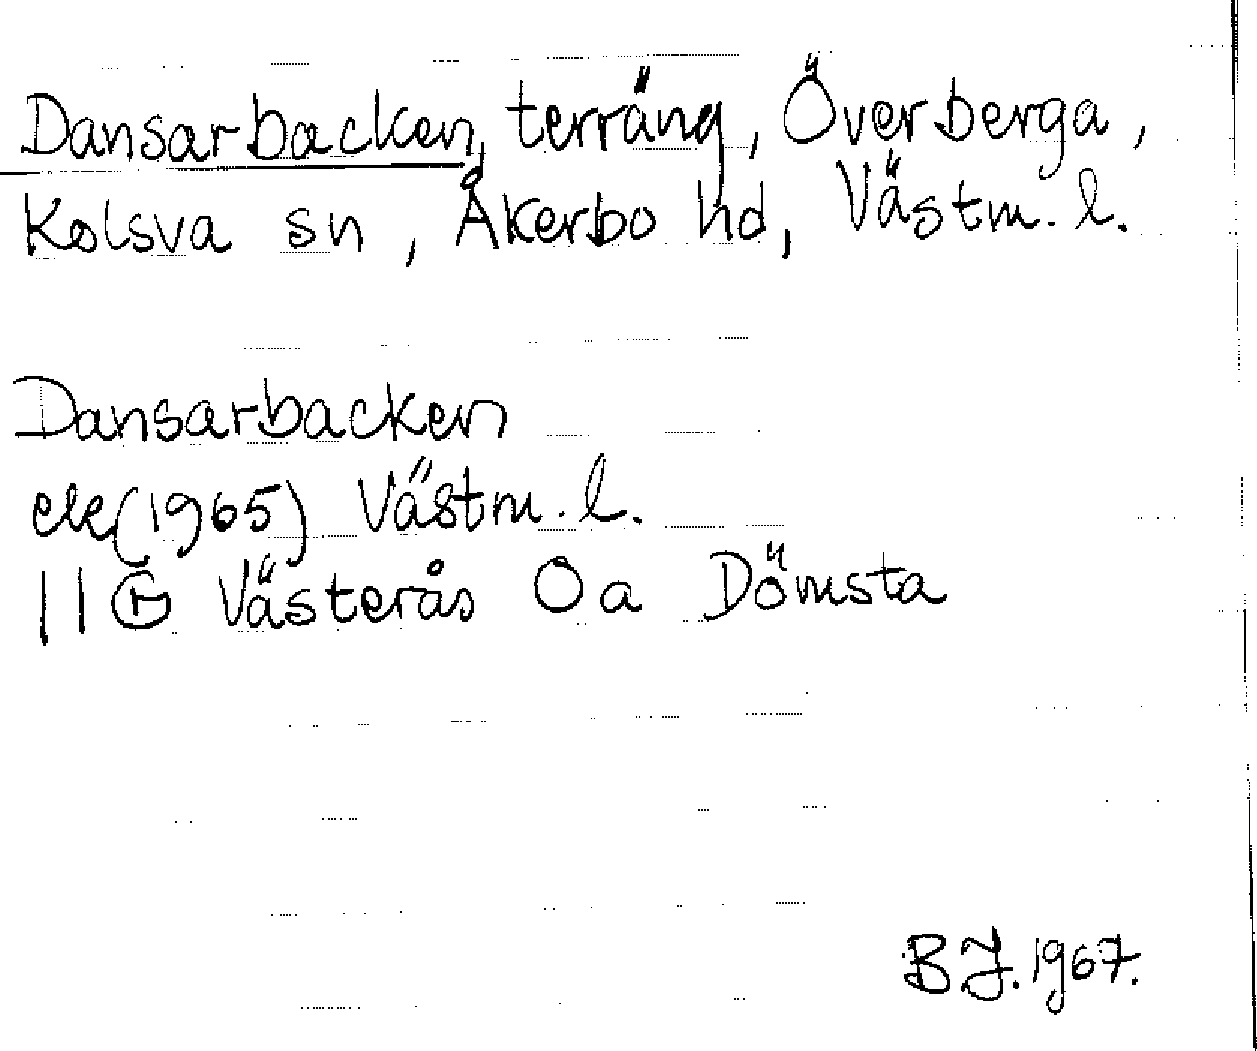 Dansarbacken, terräng, Överberga,
Kolsva sn, Åkerbo hd, Västm. l.
Dansarbacken
ek (1965) Västm. l.
11 G Västerås Oa Dömsta
BJ. 1967.